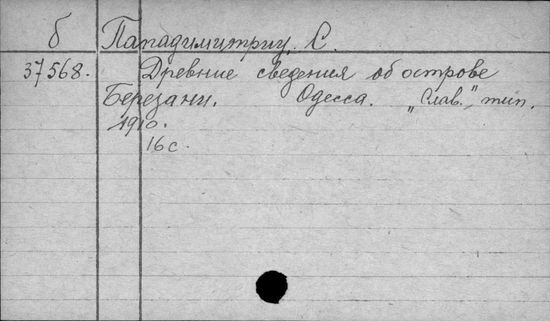 б Пападимитриу, С.
37568. Древние сведения об острове
Березани. Одесса. „Слав.", тип.
1910.
16 с.